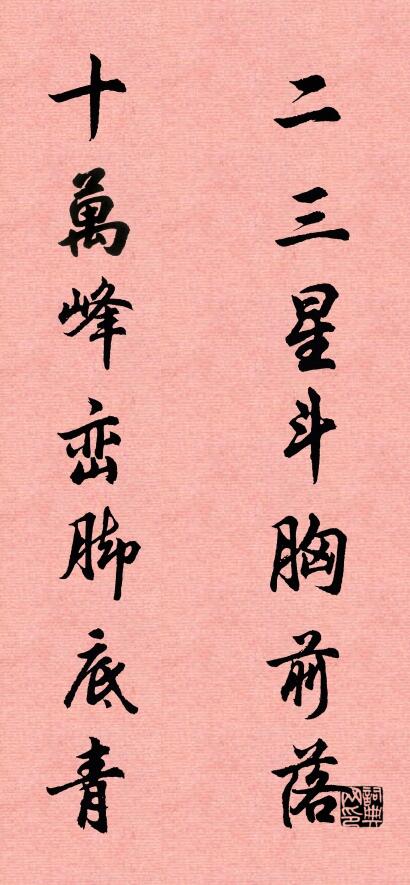 二三星斗胸前落
十萬峰峦脚底青